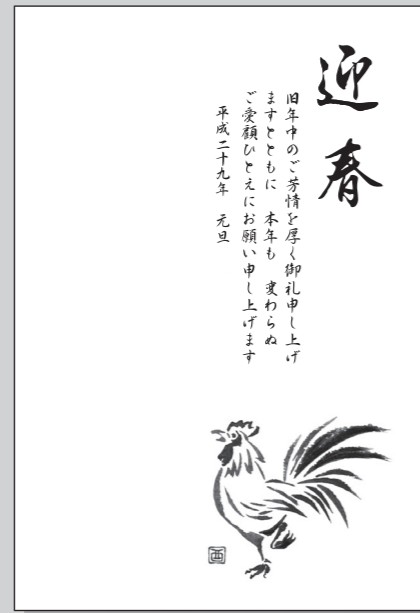 迎春
旧年中のご芳情を厚く御礼申し上げ
ますとともに　本年も　変わらぬ
ご愛顧ひとえにお願い申し上げます
平成二十九年　元旦
酉